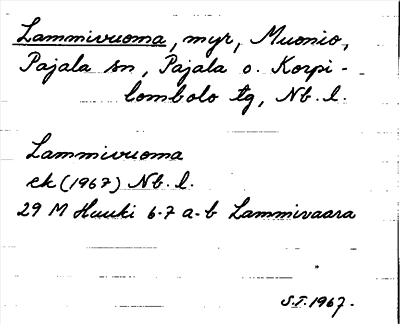 Lammivuoma, myr, Muonio,
Pajala sn, Pajala o. Korpi-
lombolo tg, Nb. l.
Lammivuoma
ek (1967) Nb. l.
29 M Hauki 6-7 a-b Lammivaara
S.T. 1967.